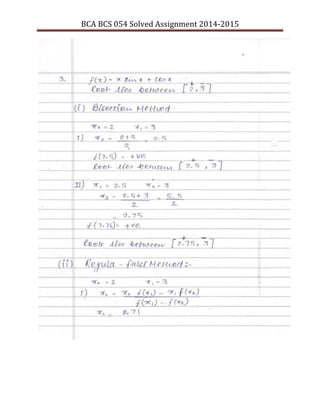 BCA BCS 054 Solved Assignment 2014-2015
3. f(x) = x sin x + cos x
Root lies between [2, 3]
+ −
(i) Bisection Method
x₀ = 2 x₁ = 3
I) x₂ = 2+3 / 2 = 2.5
f(2.5) = +ve
Root lies between [2.5, 3]
+ −
II) x₁ = 2.5 x₂ = 3
x₃ = 2.5+3 / 2 = 5.5 / 2
= 2.75
f(2.75) = +ve
Root lies between [2.75, 3]
+ −
(ii) Regula - falsi Method :-
x₀ = 2 x₁ = 3
I) x₂ = x₀ f(x₁) - x₁ f(x₀) / f(x₁) - f(x₀)
x₂ = 2.71